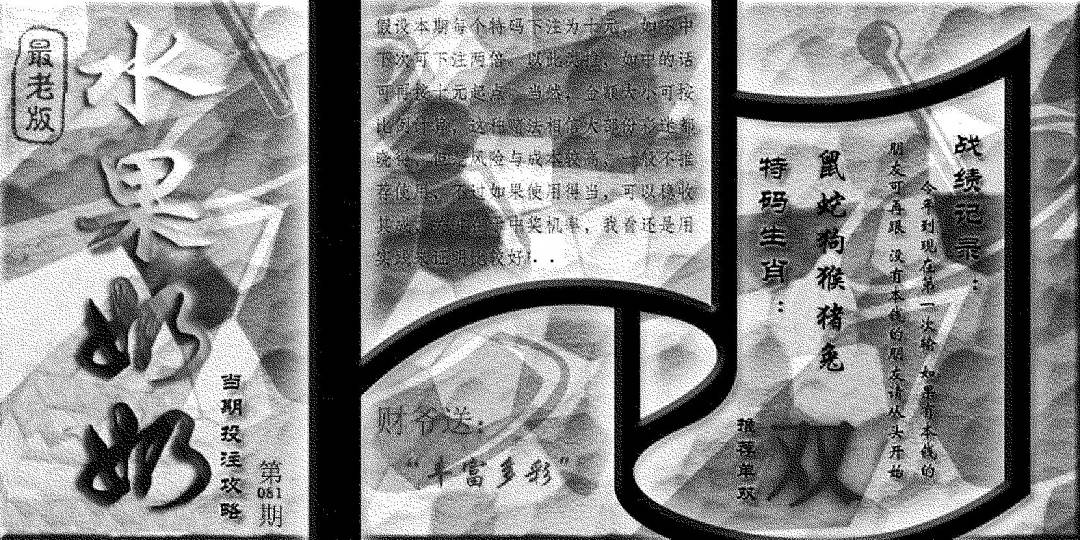 最老版
水果奶奶
当期投注攻略
第081期
假设本期每个特码下注为十元，如不中
下次可下注两倍，以此类推，如中的话
可再按十元起点，当然，金额大小可按
比例计算，这种赌法相信大部份彩迷都
晓得，但是风险与成本较高，一般不推
荐使用，不过如果使用得当，可以稳收
中奖机率，我看还是用
实践来证明比较好！..
财爷送：
“丰富多彩”
战绩记录：
今年到现在第一次输 如果有本钱的
朋友可再跟 没有本钱的朋友请从头开始
鼠蛇狗猴猪兔
特码生肖：
推荐单双